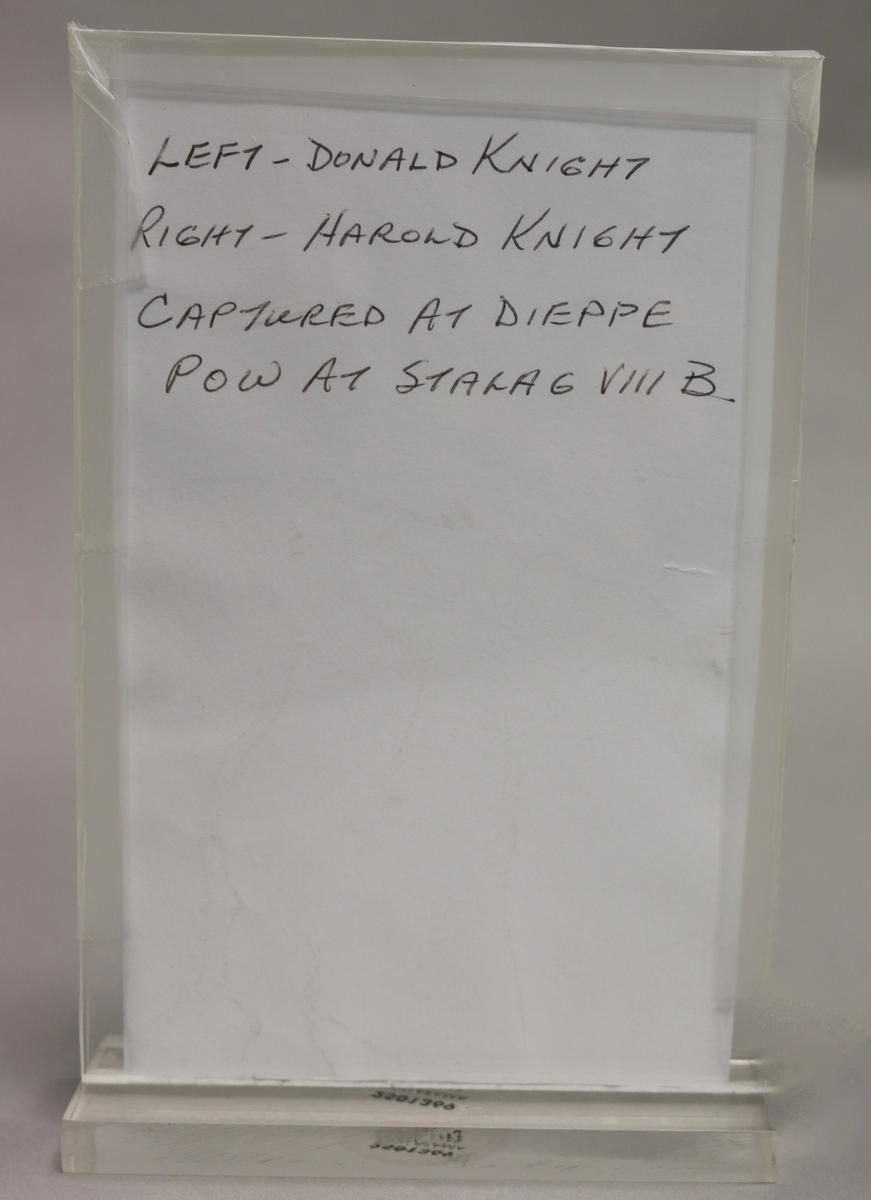 LEFT - DONALD KNIGHT
RIGHT - HAROLD KNIGHT
CAPTURED AT DIEPPE
POW AT STALAG VIII B